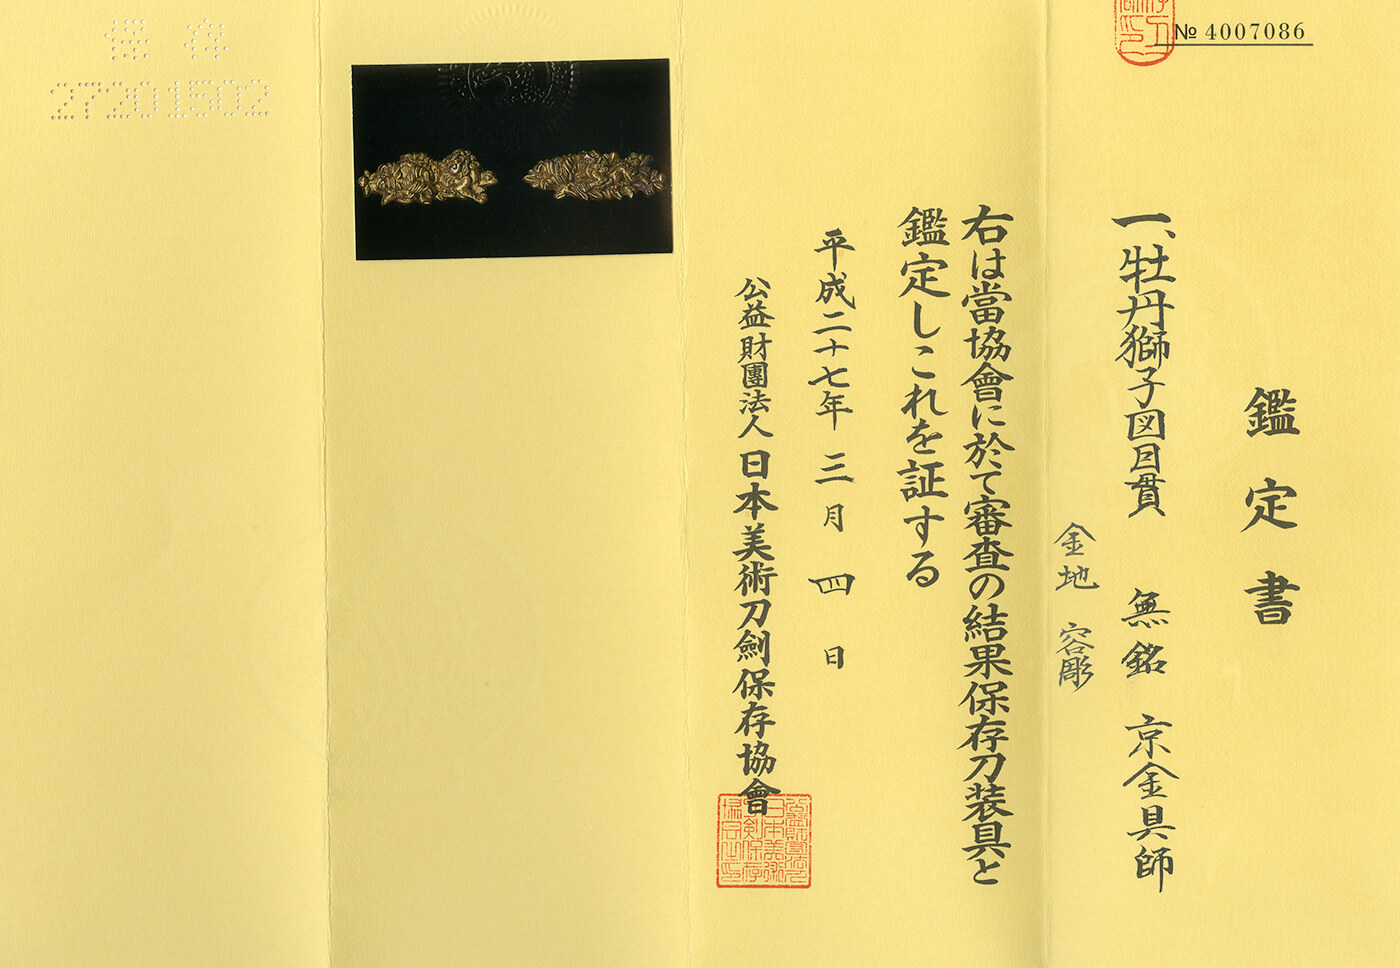 № 4007086
鑑定書
一、牡丹獅子図目貫 無銘 京金具師
金地 容彫
右は當協會に於て審査の結果保存刀装具と
鑑定しこれを証する
平成二十七年 三月 四日
公益財團法人 日本美術刀劍保存協會
保存
27201502